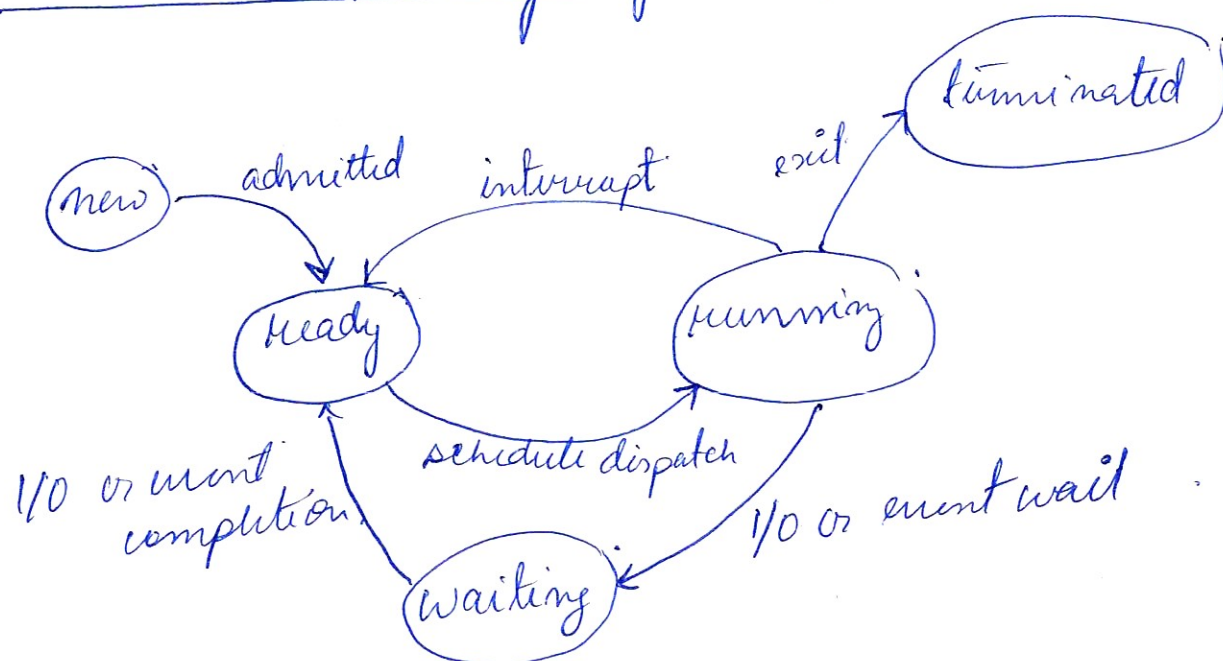 terminated
exit
admitted
interrupt
new
ready
running
schedule dispatch
I/O or event
completion
I/O or event wait
waiting